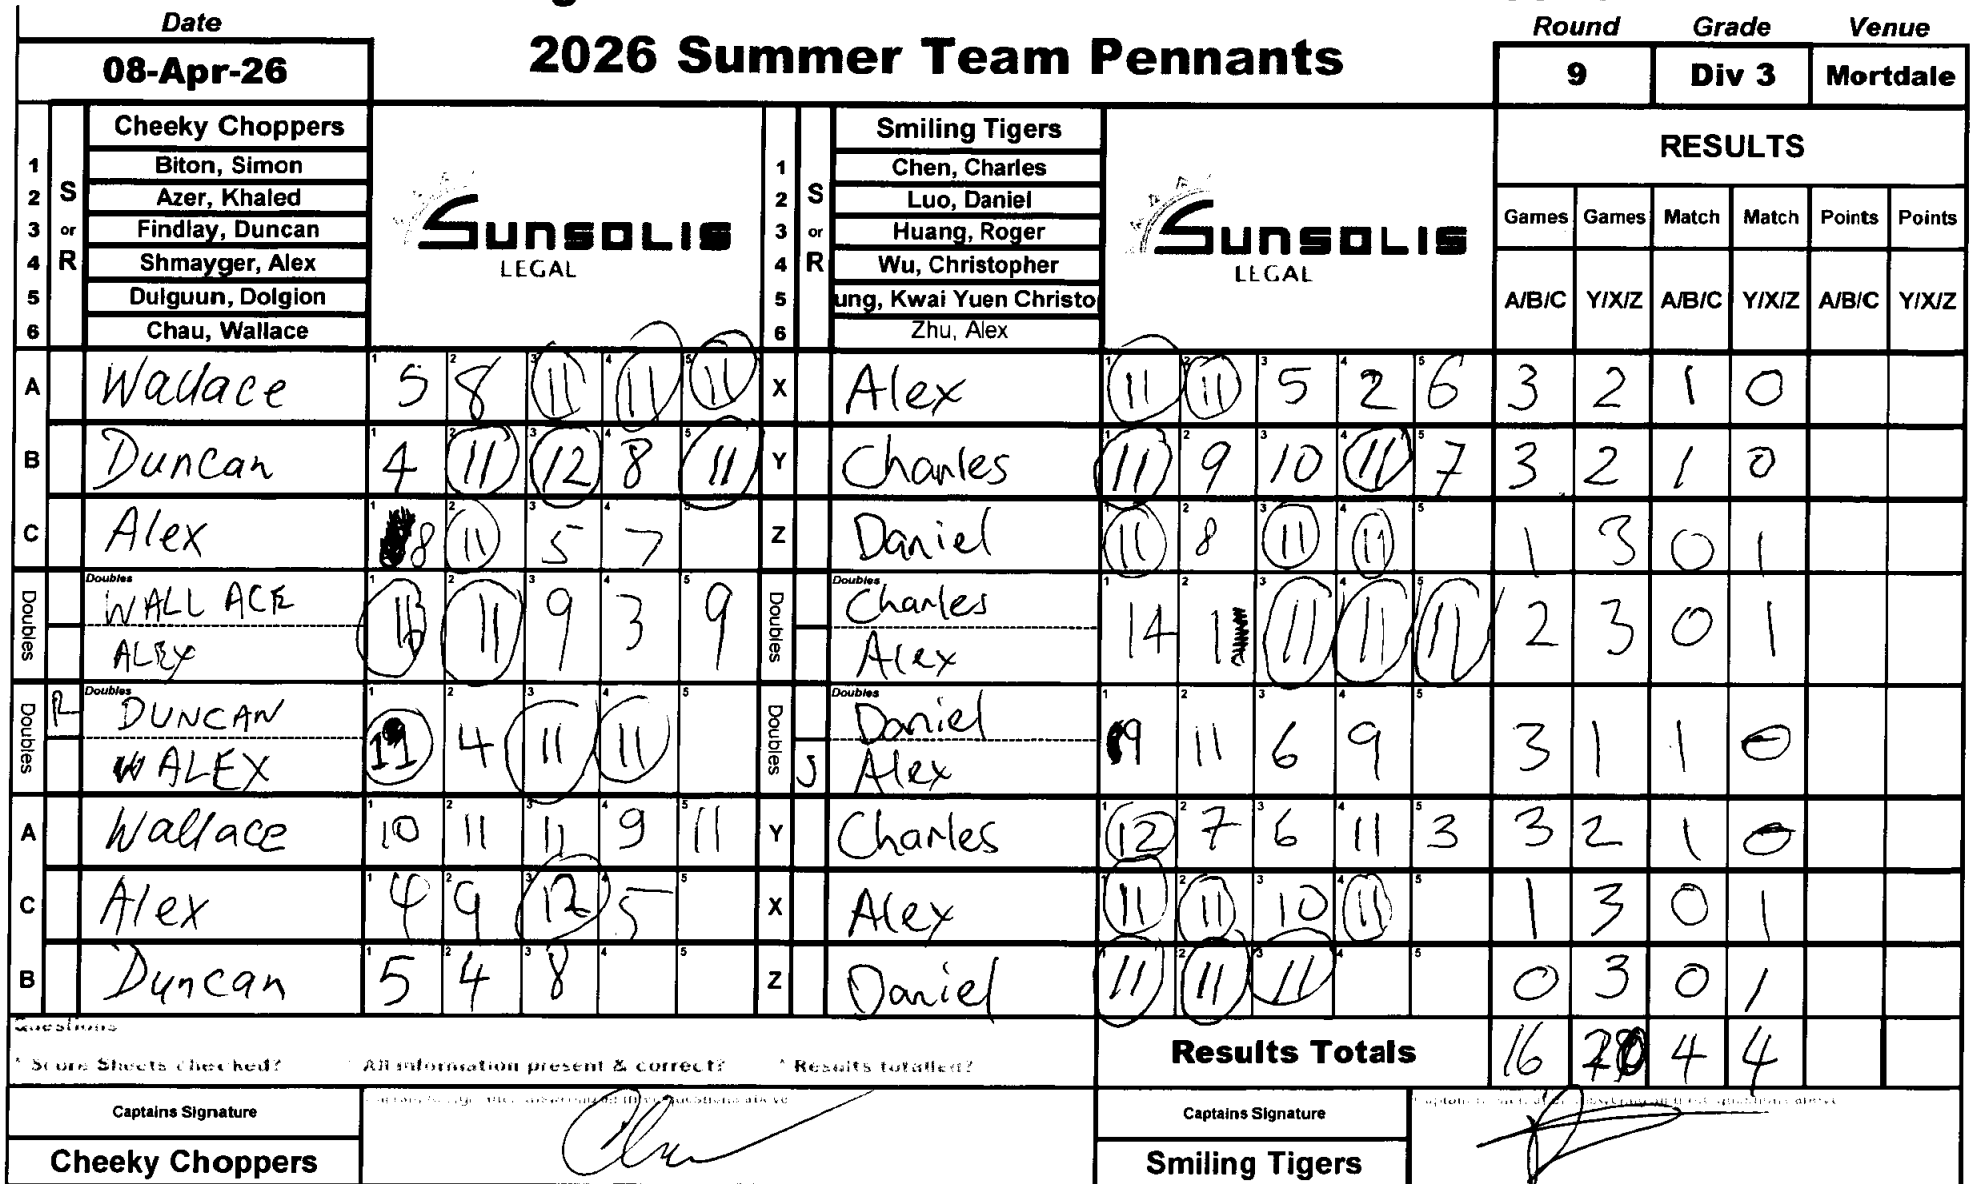 Date
08-Apr-26
2026 Summer Team Pennants
Round Grade Venue
9 Div 3 Mortdale
S or R
Cheeky Choppers
1 Biton, Simon
2 Azer, Khaled
3 Findlay, Duncan
4 Shmayger, Alex
5 Dulguun, Dolgion
6 Chau, Wallace
SUNSOLIS
LEGAL
S or R
Smiling Tigers
1 Chen, Charles
2 Luo, Daniel
3 Huang, Roger
4 Wu, Christopher
5 ung, Kwai Yuen Christo
6 Zhu, Alex
SUNSOLIS
LEGAL
RESULTS
Games Games Match Match Points Points
A/B/C Y/X/Z A/B/C Y/X/Z A/B/C Y/X/Z
A Wallace 1 5 2 8 3 11 4 11 5 11 X Alex 1 11 2 11 3 5 4 2 5 6 3 2 1 0
B Duncan 1 4 2 11 3 12 4 8 5 11 Y Charles 1 11 2 9 3 10 4 11 5 7 3 2 1 0
C Alex 1 8 2 11 3 5 4 7 5 Z Daniel 1 11 2 8 3 11 4 11 5 1 3 0 1
Doubles Doubles WALLACE ALEX 1 2 11 3 9 4 3 5 9 Doubles Doubles Charles Alex 1 14 2 1 3 11 4 11 5 11 2 3 0 1
Doubles R Doubles DUNCAN ALEX 1 11 2 4 3 11 4 11 5 Doubles S Doubles Daniel Alex 1 9 2 11 3 6 4 9 5 3 1 1 0
A Wallace 1 10 2 11 3 11 4 9 5 11 Y Charles 1 12 2 7 3 6 4 11 5 3 3 2 1 0
C Alex 1 4 2 9 3 12 4 5 5 X Alex 1 11 2 11 3 10 4 11 5 1 3 0 1
B Duncan 1 5 2 4 3 8 4 5 Z Daniel 1 11 2 11 3 11 4 5 0 3 0 1
Questions
* Score Sheets checked? * All information present & correct? * Results totalled?
Results Totals 16 4 4
Captains Signature
Cheeky Choppers
Captains Signature
Smiling Tigers